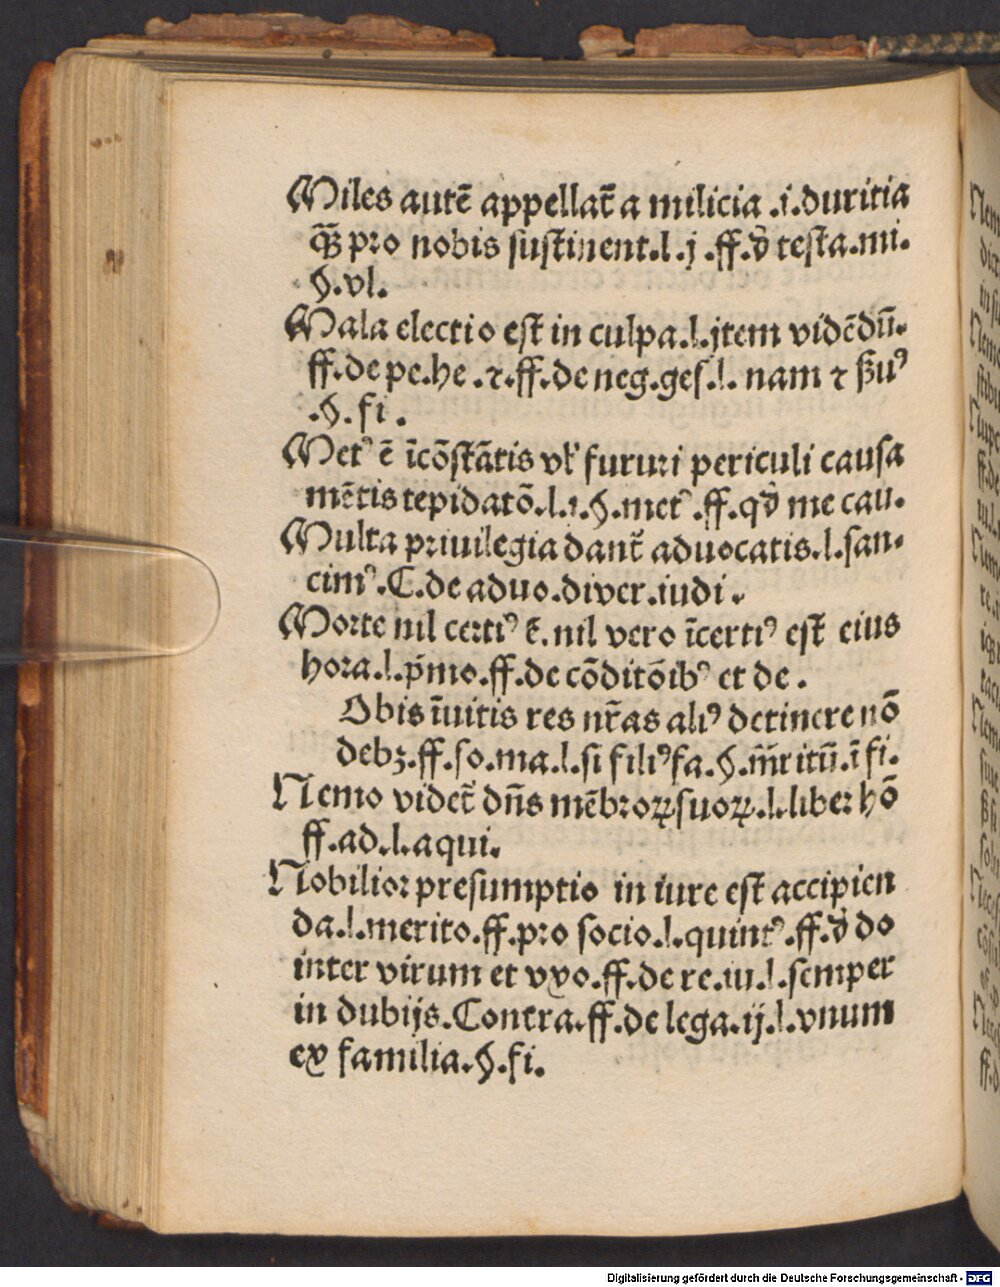 Miles autē appellat̄ a milicia .i. duritia
q̄ꝫ pro nobis sustinent.l.j.ff.ð testa.mi.
§.vl.
Mala electio est in culpa.l.jtem vidēdū.
ff.de pe.he.⁊.ff.de neg.ges.l. nam ⁊ ẞuꝰ
.§.fi.
Metꝰ ē īcōstātis vl̓ fururi periculi causa
mētis tepidatō.l.1.§.metꝰ.ff.qð me cau.
Multa priuilegia dant̄ aduocatis.l.san-
cimꝰ.C.de aduo.diver.iudi.
Morte nil certiꝰ ē. nil vero īcertiꝰ est eius
hora.l.p̄mo.ff.de cōditōibꝰ et de.
Obis īuitis res nr̄as aliꝰ detinere nō
debꝫ.ff.so.ma.l.si filiꝰfa.§.m̄ritū.ī fi.
Nemo videt̄ dn̄s mēbroꝝ suoꝝ.l.liber hō
ff.ad.l.aqui.
Nobilior presumptio in iure est accipien
da.l.merito.ff.pro socio.l.quintꝰ.ff.ð do
inter virum et vxo.ff.de re.iu.l.semper
in dubijs.Contra.ff.de lega.ij.l.vnum
ex familia.§.fi.
Digitalisierung gefördert durch die Deutsche Forschungsgemeinschaft - DFG